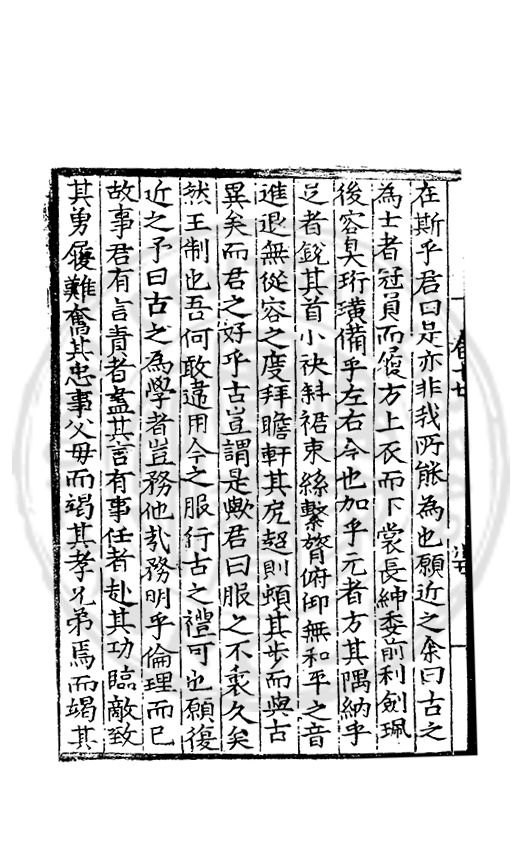 在斯乎君曰是亦非我所能為也願近之余曰古之
為士者冠員而履方上衣而下裳長紳委前利劍珮
後容臭珩璜備乎左右今也加乎元者方其隅納乎
足者銳其首小袂斜裾束絲繫膂俯仰無和平之音
進退無從容之度拜瞻軒其尻趨則頓其步而與古
異矣而君之好乎古豈謂是歟君曰服之不衷久矣
然王制也吾何敢違用今之服行古之禮可也願復
近之予曰古之為學者豈務他哉務明乎倫理而已
故事君有言責者盡其言有事任者赴其功臨敵致
其勇履難奮其忠事父母而竭其孝兄弟焉而竭其